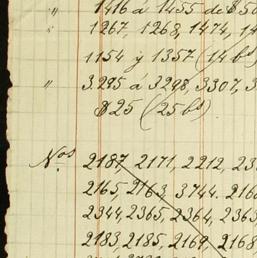 " 1416 á 1435 de $50
" 1267, 1268, 1474, 14
1154 y 1357 (14 bs)
" 3.295 á 3298, 3307, 3
$25 (25 bs)
Nos. 2187, 2171, 2212, 23
2165, 2163, 3744. 216
2344, 2365, 2364, 236
2183, 2185, 2169, 2168